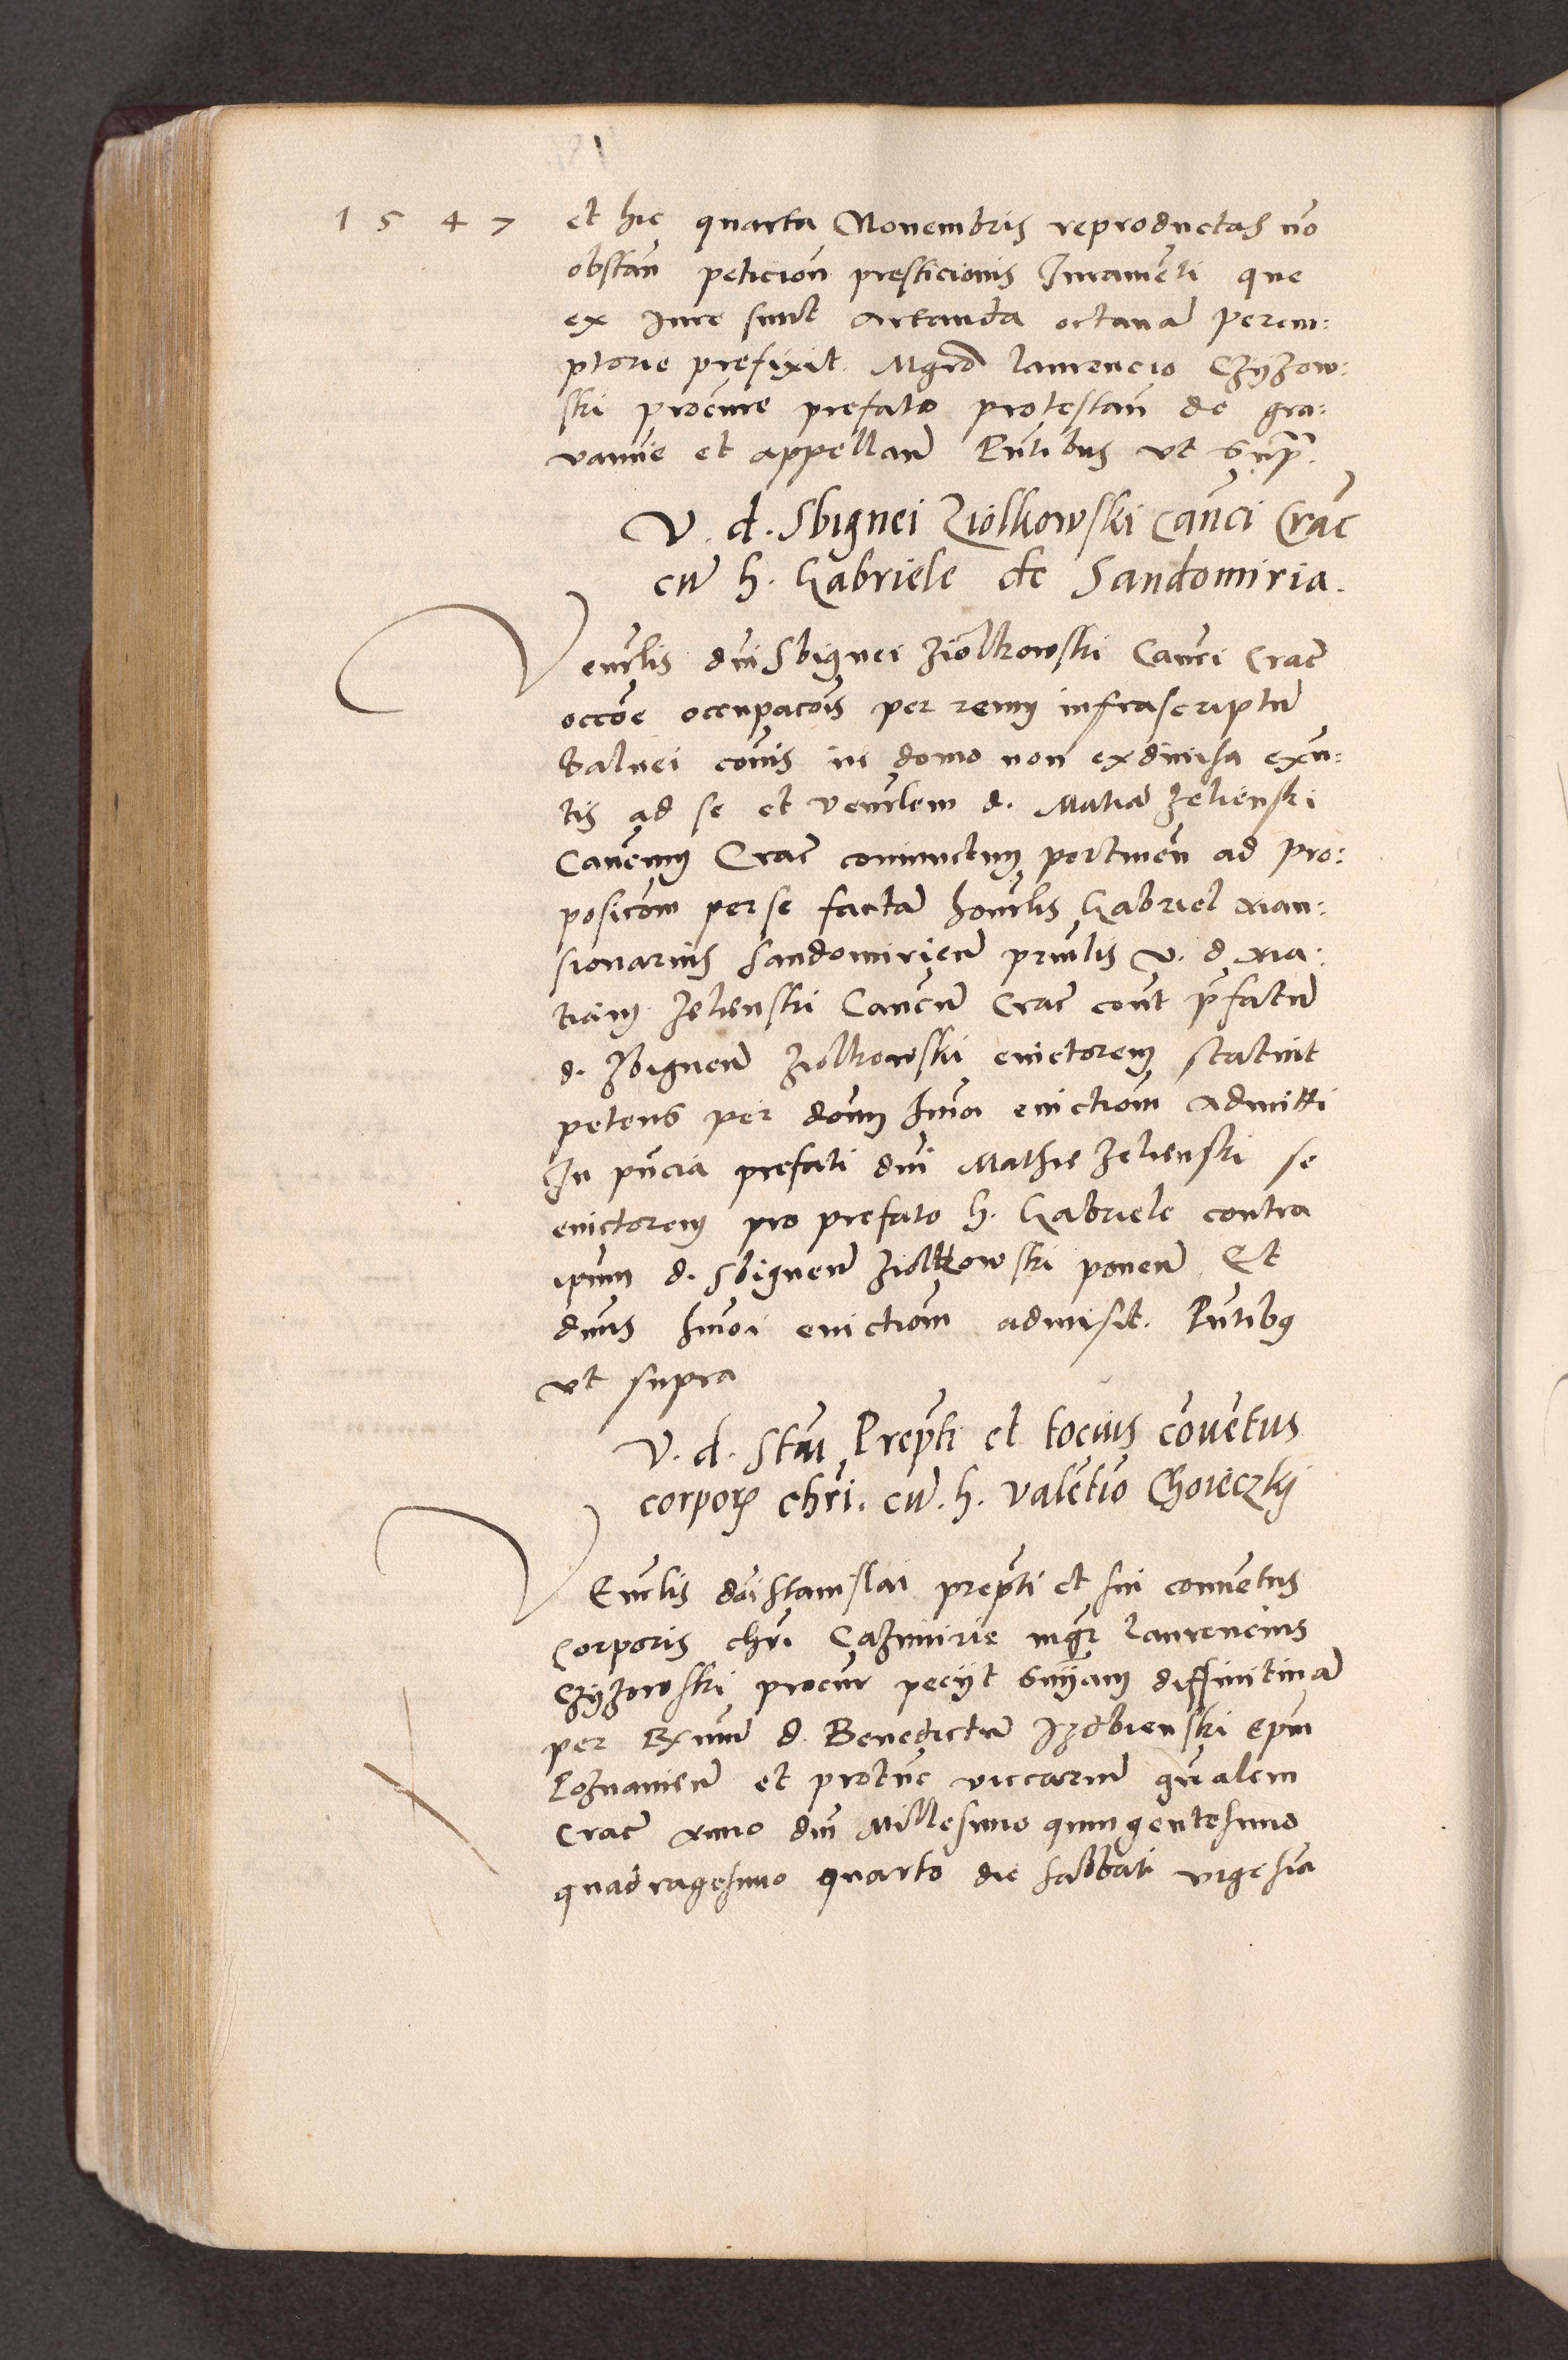 1 5 4 7
et hic quarta Nouembris reproductas nō
obstañ peticioñ prestitionis Juramēti que
ex Jure sunt artanda octauā perem:
ptorie prefixit. Mgrō laurencio Czyżow:
ski procure prefato protestañ de gra:
vamīe et appellañ Pn̄tibus vt Supr.
V. d. Sbignei Ziolkowski Can̄ci Crac̄
cū h. Gabriele de Sandomiria.
Venrlis dn̄i Sbignei Ziolkowski Canci Crac̄
occōe occupacōis per reum infrascriptū
balnei cōuis in domo non exdiuisa exn̄:
tis ad se et venrlem d. Matiā Zelienski
Cancum Crac̄ coniunctim pertineñ ad pro:
posicōm per se factā honrlis Gabriel man:
sionarius Sandomirieñ prn̄lis v. d. Ma:
tiam Zelienski Cancū Crac̄ cont̄ p̄fatū
d. Zbigneū Ziolkowski euictorem statuit
petens per dōm hmōi euictiōm admitti
In pn̄cia prefati dn̄i Mathie Zelienski se
euictorem pro prefato h. Gabriele contra
ipum d. Sbigneū Ziolkowski poneñ Et
dn̄us hmōi euictiōm admisit. Pn̄tibus
vt supra
V. d. Stāi Prep̄ti et tocius cōuētus
corporis chrī. cū. h. Valētīo Choieczky
Venrlis dn̄i Stanislai prep̄ti et sui conuētus
Corporis chrī Cazimirie mgr̄ laurencius
Czyżowski procur̄ peciit Snīam diffinitiuā
per Rxmū d. Benedictū Izdbienski Epm̄
Poznanieñ et protūc viccariū gn̄alem
Crac̄ anno dn̄i Millesimo quingentesimo
quadragesimo quarto die sabbati vigesīa